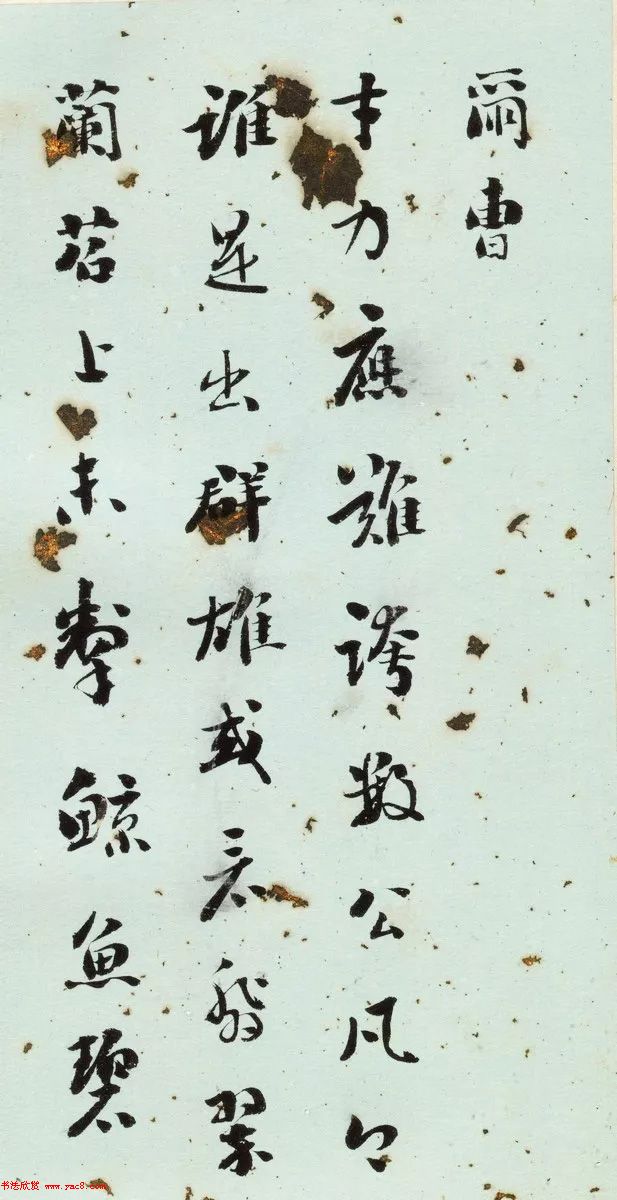 爾曹
才力應難誇數公凡今
誰是出群雄或看翡翠
蘭苕上未掣鯨魚碧
书法欣赏 www.yac8.com